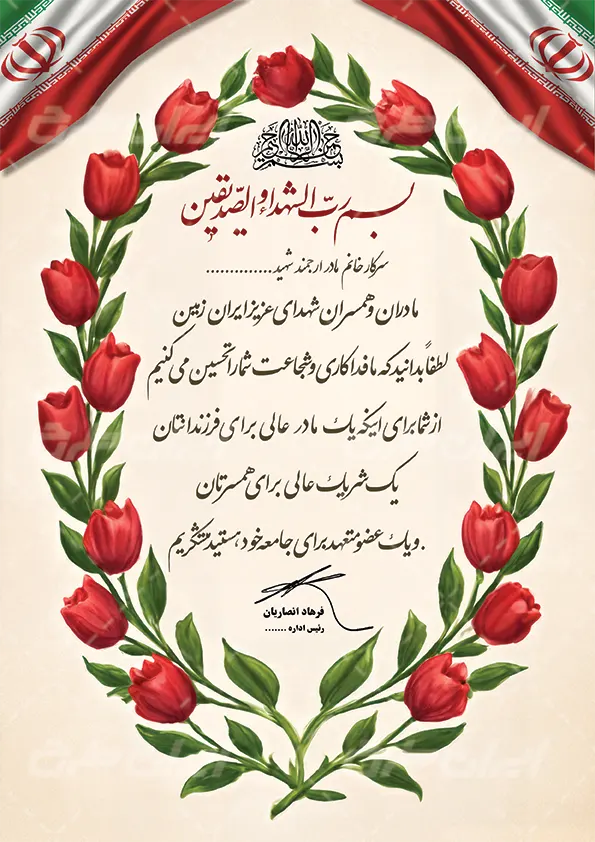 بسم الله الرحمن الرحیم
بسم ربّ الشهداء و الصّدیقین
سرکار خانم مادر ارجمند شهید..............
مادران و همسران شهدای عزیز ایران زمین
لطفاً بدانید که ما فداکاری و شجاعت شما را تحسین می کنیم
از شما برای اینکه یک مادر عالی برای فرزندانتان
یک شریک عالی برای همسرتان
و یک عضو متعهد برای جامعه خود هستید متشکریم.
فرهاد انصاریان
رئیس اداره .......
ایران طرح